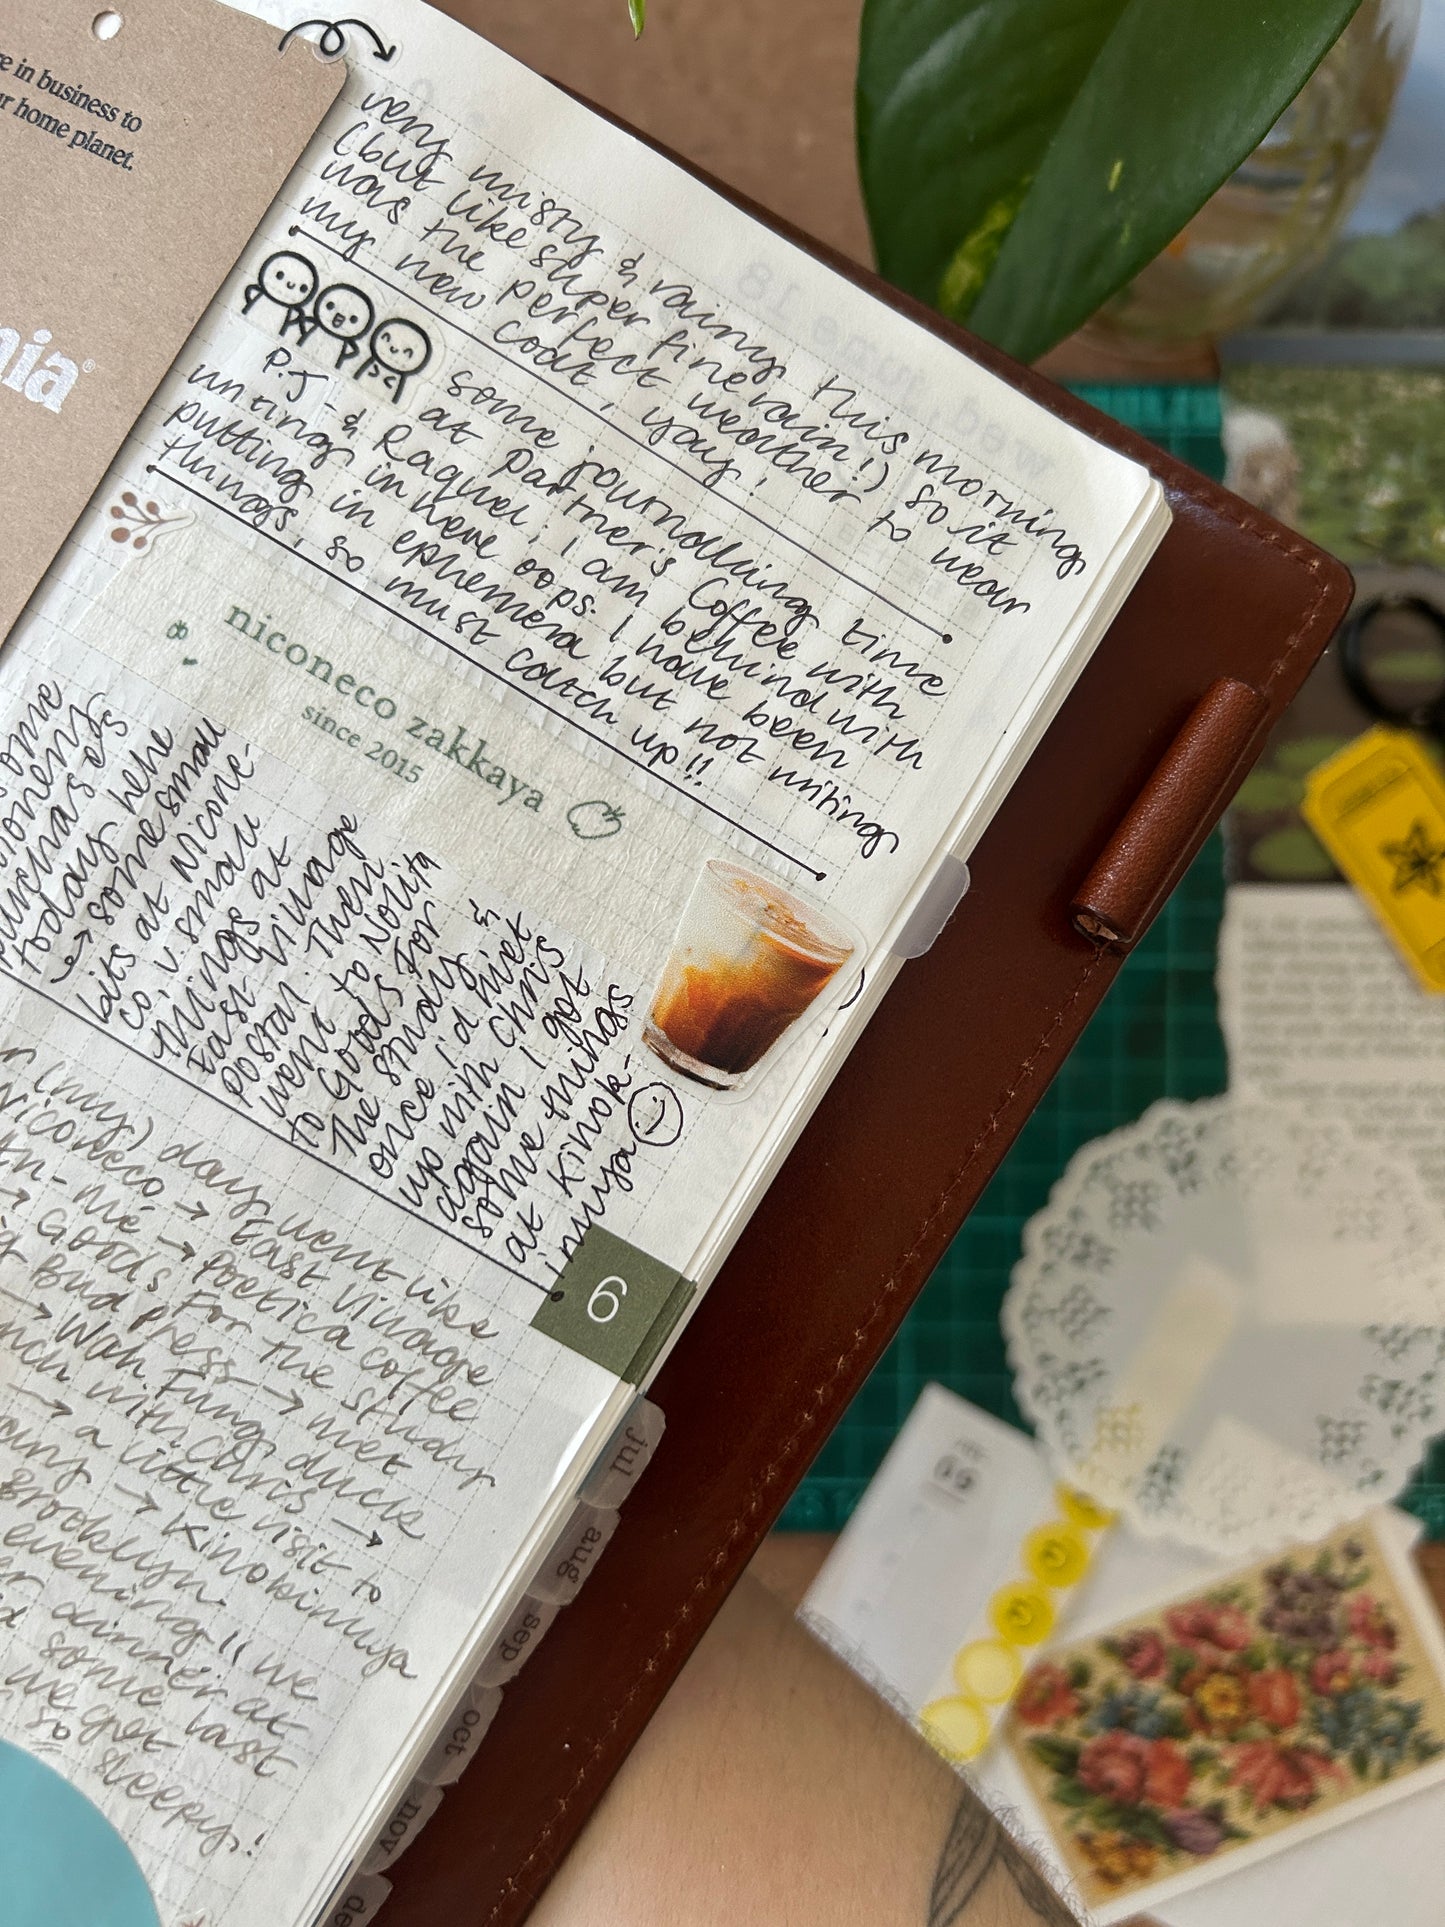 re in business to
r home planet.
nia®
very misty & rainy this morning
(but like super fine rain!) so it
was the perfect weather to wear
my new coat, yay!
some journalling time
at Partner's Coffee with
P.J & Raquel; I am behind with
writing in here oops. I have been
putting in ephemera but not writing
things, so must catch up!!
niconeco zakkaya
since 2015
ome
tionery
purchases
today hehe
→ some small
bits at Nicone-
co, v small
things at
East Village
postal. Then
went to Nolita
to Goods For
the Study &
once I'd met
up with Chris
again I got
some things
at Kinok-
iniya
(my) day went like
Niconeco → East Village
→ Poetica coffee
→ Goods For the Study
Bud Press → met
→ Wah Fung duck
with Chris →
→ a little visit to
→ Kinokiniya
Brooklyn.
evening!! we
dinner at
some last
we got
so sleepy!
6
jul
aug
sep
oct
nov
de